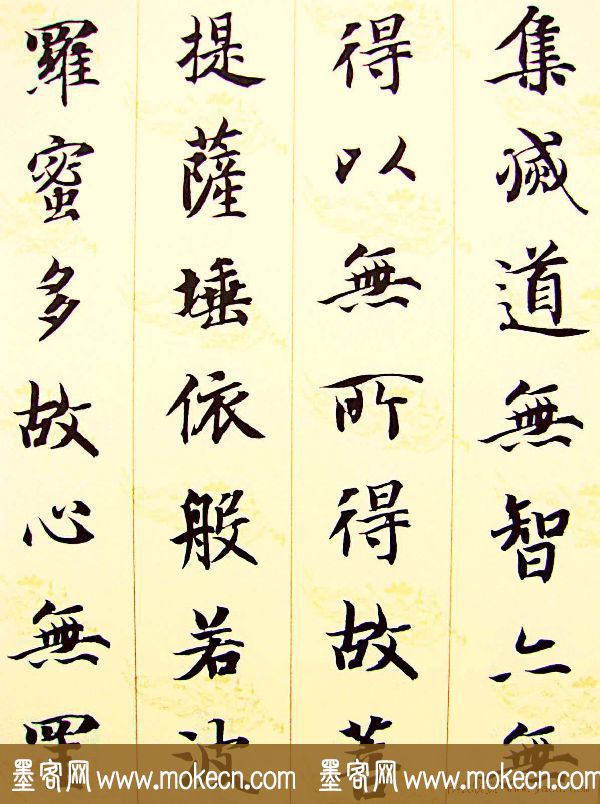 集滅道無智亦無
得以無所得故菩
提薩埵依般若波
羅蜜多故心無罣
墨客网 www.mokecn.com 墨客网 www.mokecn.com